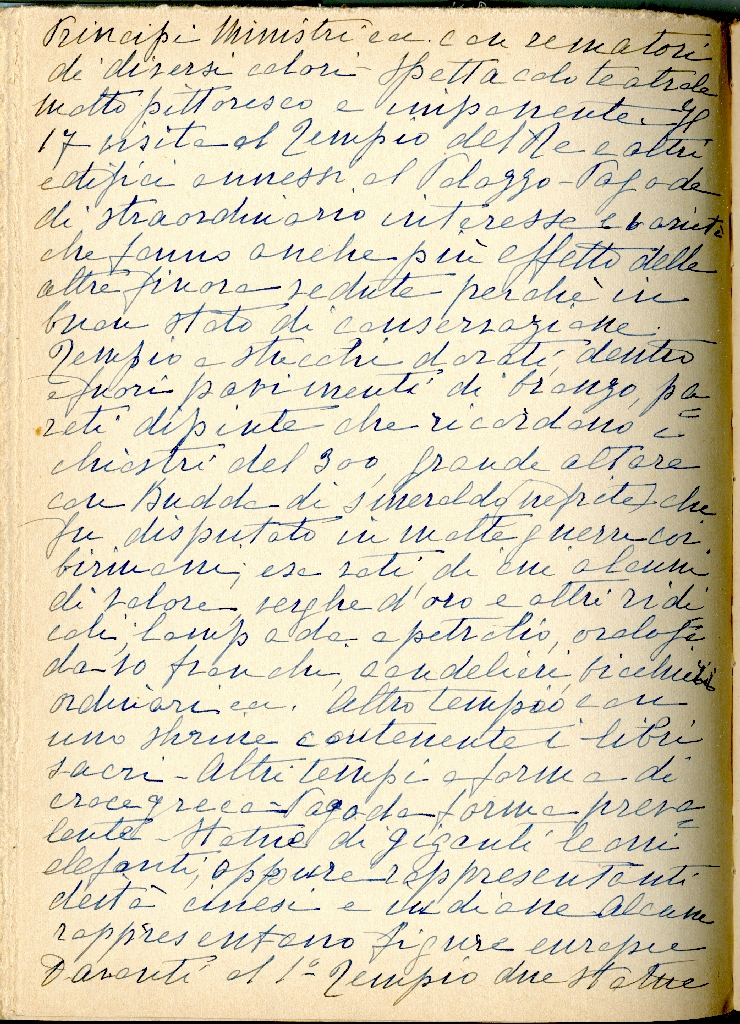 Principi Ministri ecc. con rematori
di diversi colori - Spettacolo teatrale
molto pittoresco e imponente. Il
17 visita al Tempio del Re e altri
edifici annessi al Palazzo - Pagode
di straordinario interesse e varietà
che fanno anche più effetto delle
altre finora vedute perchè in
buon stato di conservazione.
Tempio a stucchi dorati, dentro
e fuori pavimenti di bronzo, pa=
reti dipinte che ricordano i
chiostri del 300, grande altare
con Budda di smeraldo (nefrite) che
fu disputato in molte guerre coi
birmani; ex voti, di cui alcuni
di valore, verghe d'oro e altri ridi
coli, lampada a petrolio, orologi
da 10 franchi, candelieri, bicchieri
ordinari ecc. Altro tempio con
uno shrine contenente i libri
sacri - Altri tempi a forma di
croce greca - Pagoda forma preva=
lente - Statue di giganti leoni
elefanti, oppure rappresentanti
deità cinesi e indiane alcune
rappresentano figure europee
Davanti al 1º Tempio due statue